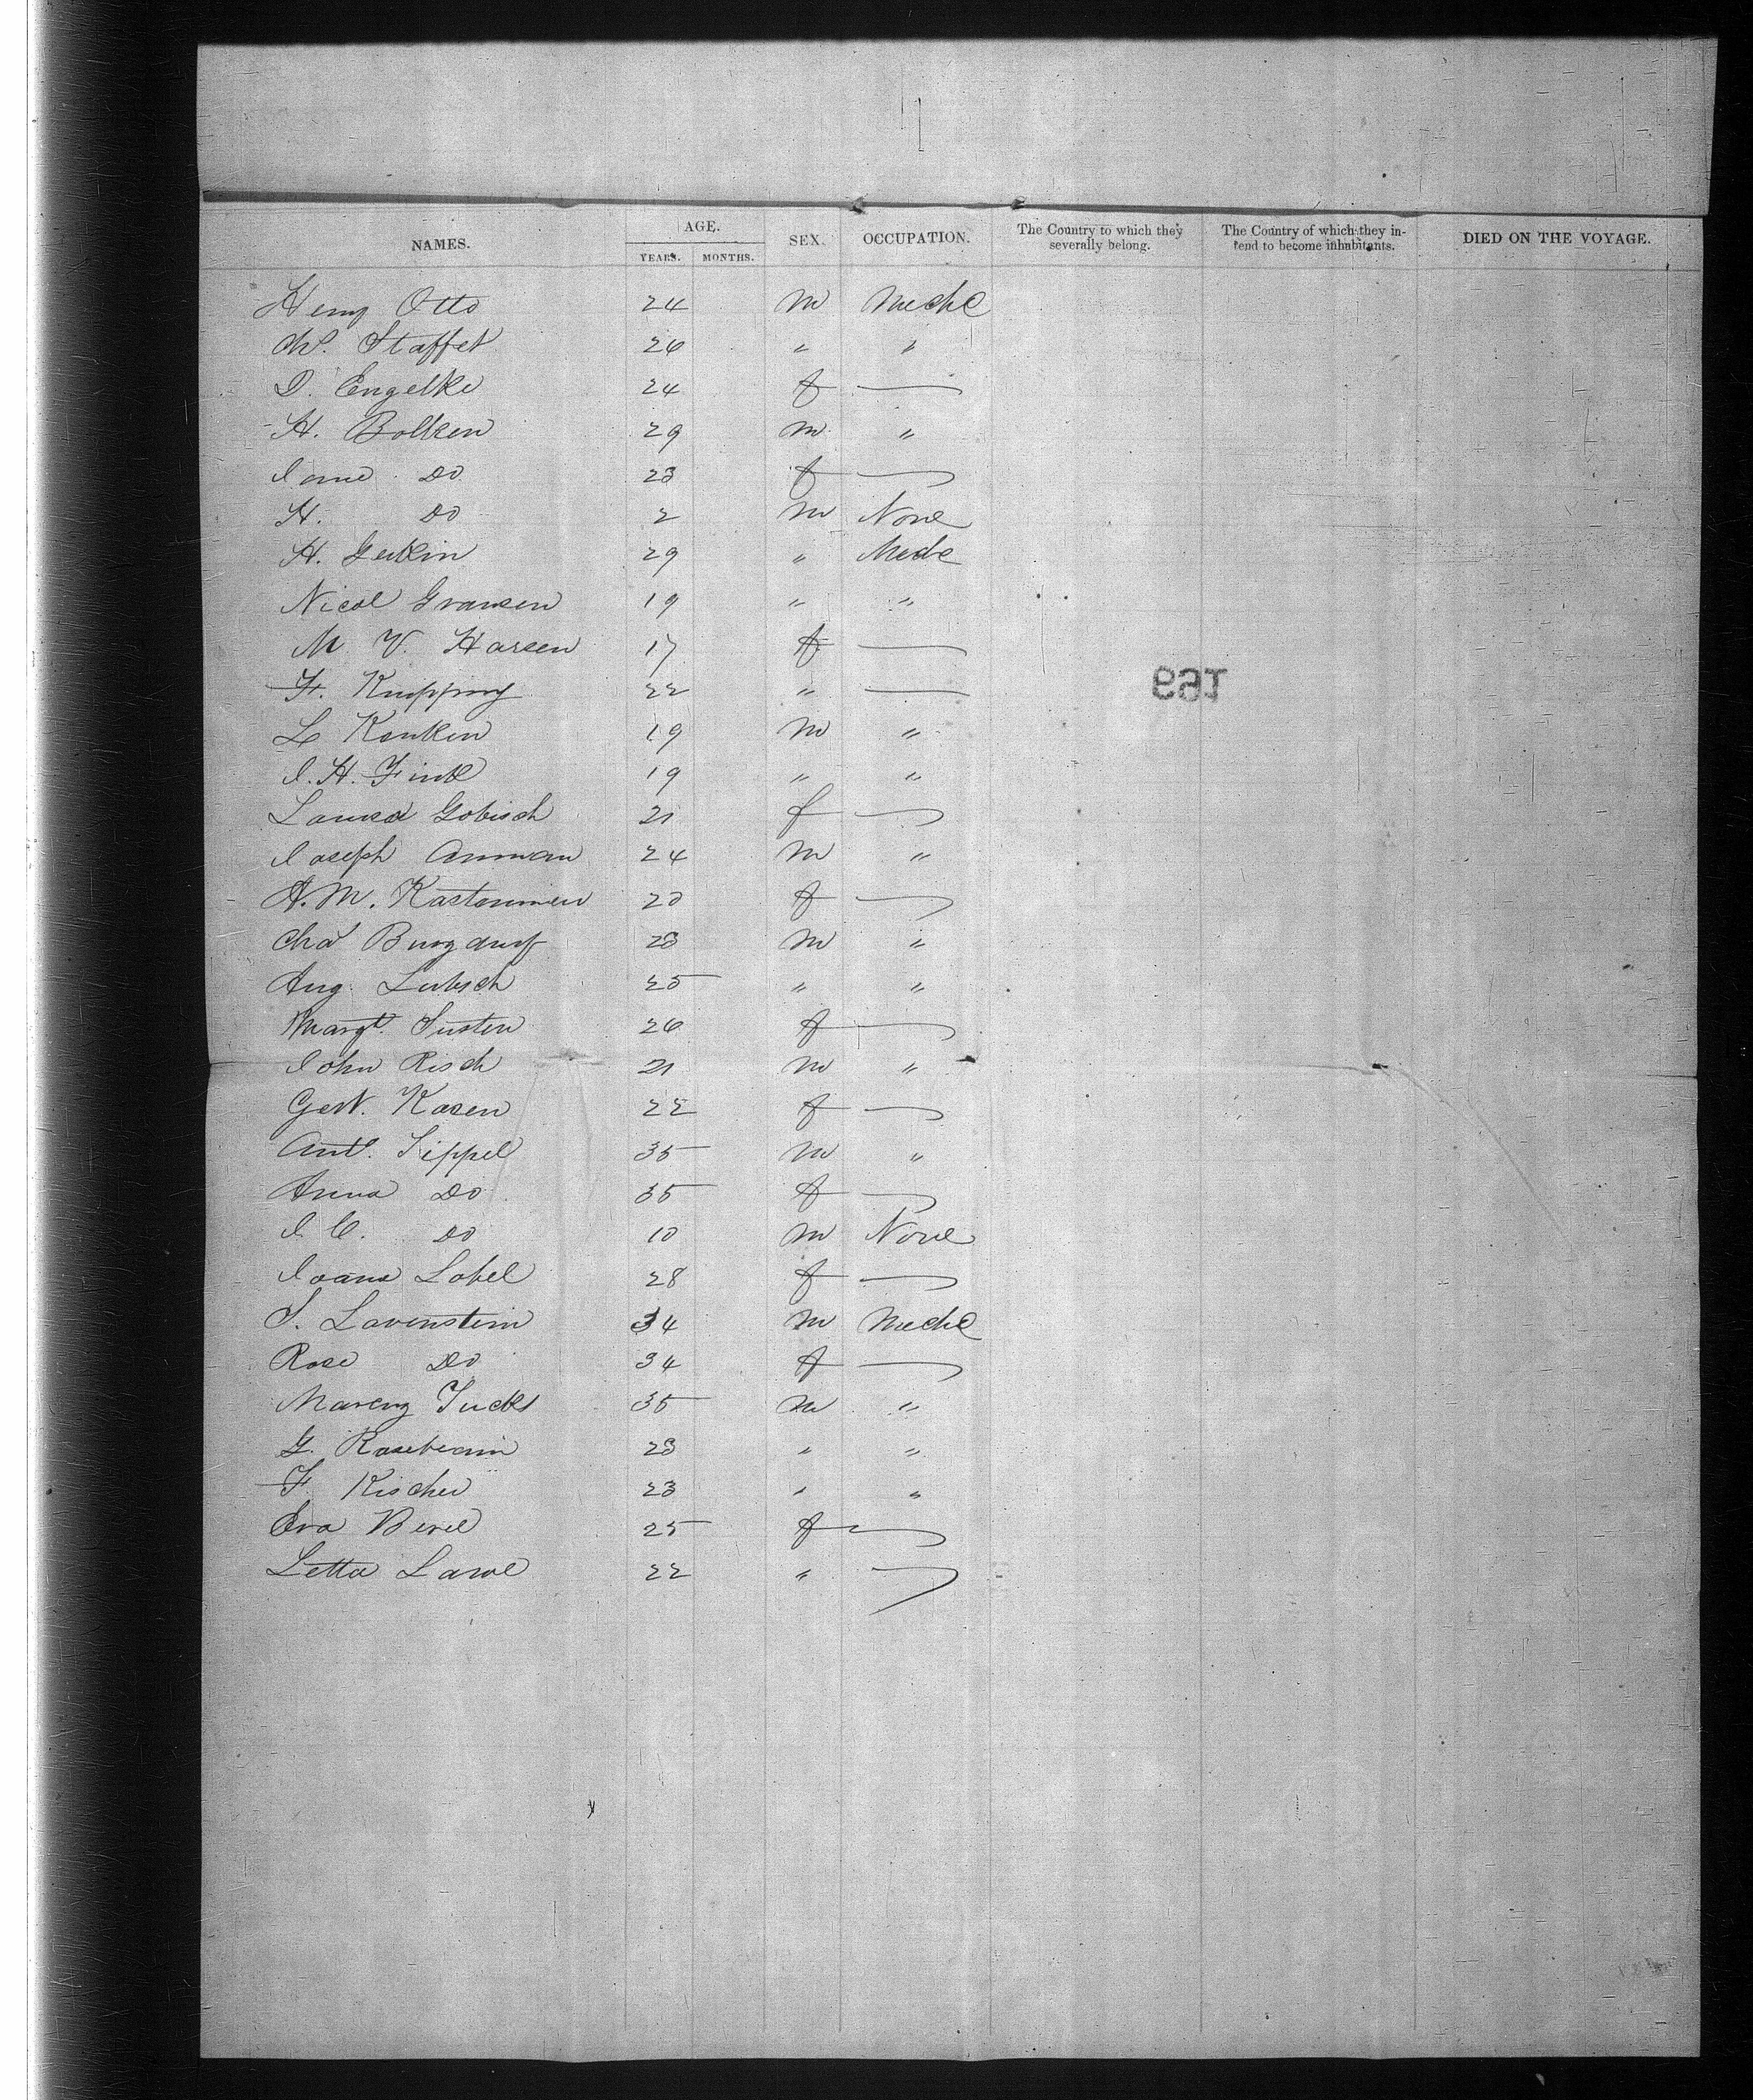 NAMES. AGE. YEARS. MONTHS. SEX. OCCUPATION. The Country to which they severally belong. The Country of which they intend to become inhabitants. DIED ON THE VOYAGE.
Heny Otto 24 m Mechc
Chs. Staffet 26 " "
D. Engelke 24 f
H. Bolken 29 m "
Do 23 f
H. Do 2 m None
H. Gerkin 29 " Mechc
Nicol Gransen 19 " "
M V. Harsen 17 f
F. Knipping 22 "
L Konken 19 m "
J. H. Fink 19 " "
Louisa Gobisch 21 f
Joseph Amman 24 m "
A. M. 20 f
Cha Burgdurf 23 m "
Aug. Lubsch 25 " "
Margt. Susten 26 f
John Risch 21 m "
Gert. Kasen 22 f
Ant. Sippel 35 m "
Anna Do 35 f
J. C. Do 10 m None
Joana Lobel 28 f
S. Lovenstein 34 m Mechc
Rose Do 34 f
Fucks 35 m "
G. Rosebaum 23 " "
F Kischer 23 " "
Eva 25 f
Letta 22 "
169